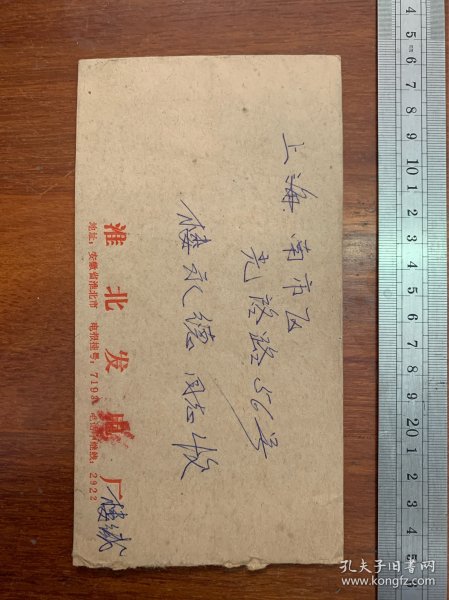 上海南市区
光启路56号
楼永德同志收
淮北发电厂
地址：安徽省淮北市 电报挂号：7193 2922
楼缄
孔夫子旧书网
www.kongfz.com
4 5 6 7 8 9 10 1 2 3 4 5 6 7 8 9 20 1 2 3 4 5 6